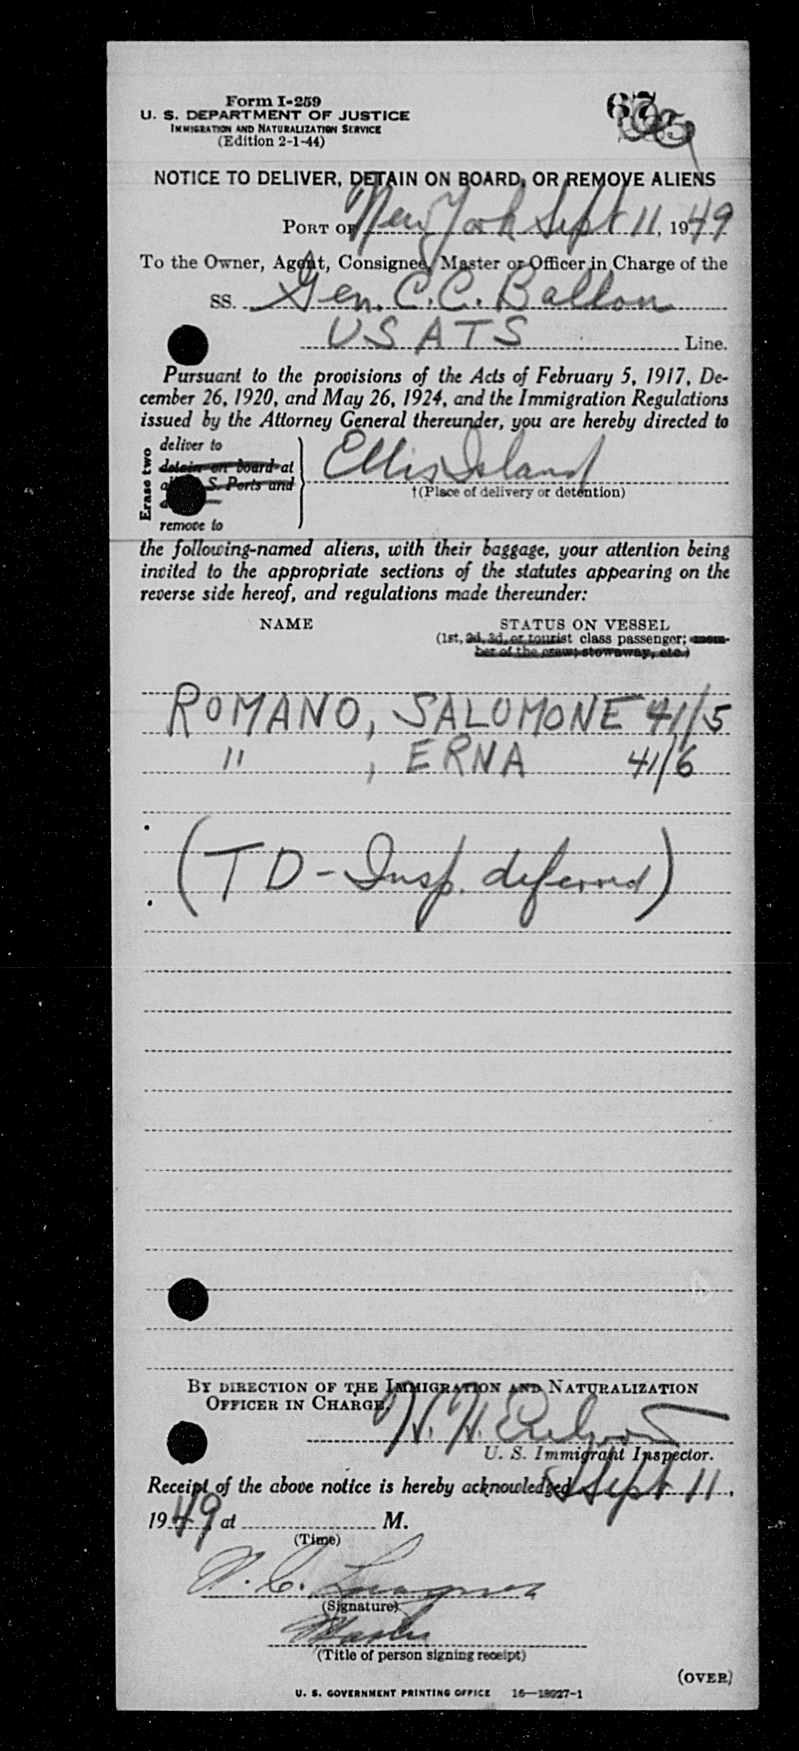 Form I-259
67
U. S. DEPARTMENT OF JUSTICE
IMMIGRATION AND NATURALIZATION SERVICE
(Edition 2-1-44)
NOTICE TO DELIVER, DETAIN ON BOARD, OR REMOVE ALIENS
PORT OF New York Sept 11, 1949
To the Owner, Agent, Consignee, Master or Officer in Charge of the
SS. Gen. C.C. Ballou
USATS Line.
Pursuant to the provisions of the Acts of February 5, 1917, De-
cember 26, 1920, and May 26, 1924, and the Immigration Regulations
issued by the Attorney General thereunder, you are hereby directed to
Erase two
deliver to
detain on board at
S. Ports and
remove to
Ellis Island
†(Place of delivery or detention)
the following-named aliens, with their baggage, your attention being
invited to the appropriate sections of the statutes appearing on the
reverse side hereof, and regulations made thereunder:
NAME STATUS ON VESSEL
(1st, 2d, 3d, or tourist class passenger; mem-
ber of the crew; stowaway, etc.)
ROMANO, SALOMONE 41/5
" , ERNA 41/6
(TD - Insp. deferred)
BY DIRECTION OF THE IMMIGRATION AND NATURALIZATION
OFFICER IN CHARGE,
H. H.
U. S. Immigrant Inspector.
Receipt of the above notice is hereby acknowledged Sept 11,
1949 at M.
(Time)
(Signature)
Master
(Title of person signing receipt)
(OVER)
U. S. GOVERNMENT PRINTING OFFICE 16—18927-1